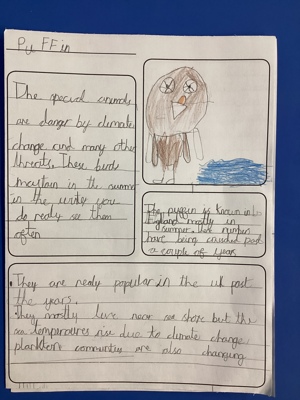 Puffin
The special animals
are danger by climate
change and many other
threats. These birds
maintain in the summer
in the winter you
do really see them
often
The puffin is known in
England mostly in
summer. their numbers
have being crushed past
a couple of years
They are realy popular in the uk past
the years.
They mostly live near sea shore but the
sea temperatures rise due to climate change
plankton communities are also changing